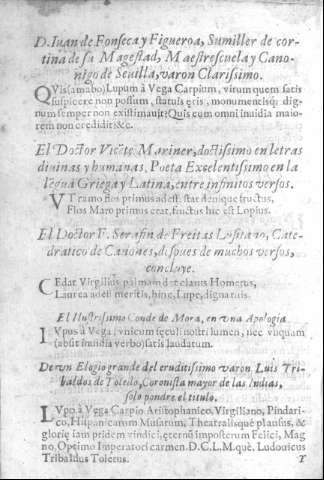 D. Iuan de Fonseca y Figueroa, Sumiller de cor-
tina de su Magestad, Maestrescuela y Cano-
nigo de Seuilla, varon Clarissimo.
QVis (amabo) Lupum à Vega Carpium, virum quem satis
suspicere non possum, statuis æris, monumentisq; dig-
num semper non existimauit? Quis eum omni inuidia maio-
rem non credidit? &c.
El Doctor Mariner, doctissimo en letras
diuinas y humanas, Poeta Excelentissimo en la
legua Griega y Latina, entre infinitos versos.
VT ramo flos primus adest. stat denique fructus,
Flos Maro primus erat, fructus hic est Lopius.
El Doctor F. Serafin de Freitas Lusitano, Cate-
dratico de Canones, despues de muchos versos,
concluye.
CEdat Virgilius palmam det clarus Homerus,
Laurea adest meritis, hinc, Lupe, digna tuis.
El Ilustrissimo Conde de Mora, en vna Apologia
LVpus à Vega, vnicum seculi nostri lumen, nec vnquam
(absit inuidia verbo) satis laudatum.
De vn Elogio grande del eruditissimo varon Luis Tri-
baldos de Toledo, Coronista mayor de las Indias,
solo pondre el titulo.
LVpo à Vega Carpio Aristophanico, Virgiliano, Pindari-
co, Hispanicarum Musarum, Theatralisquè plausus, &
gloriæ iam pridem vindici, æternùm posterum Felici, Mag
no, Optimo Imperatori carmen D.C.L.M.què. Ludouicus
Tribaldus Toletus. T